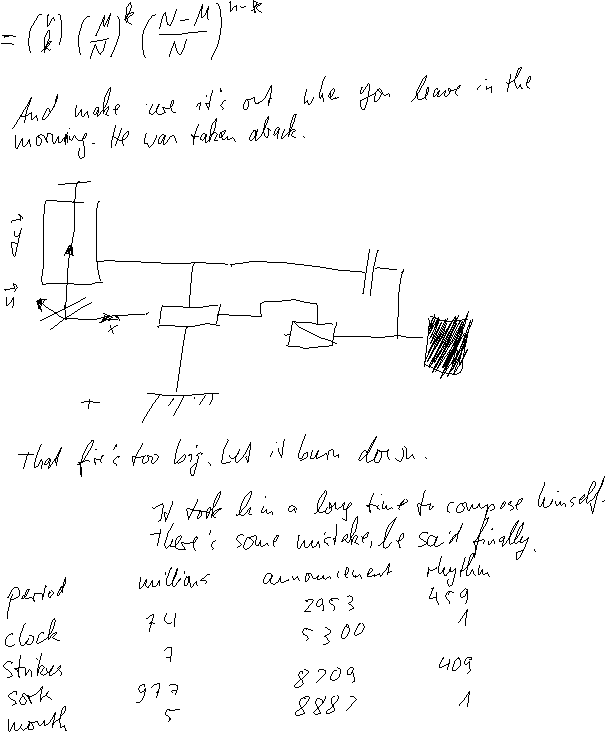 = (n k) (M/N)^k ((N-M)/N)^n-k
And make sure it's out when you leave in the
morning. He was taken aback.
x
+
That fire's too big. Let it burn down.
It took him a long time to compose himself.
There's some mistake, he said finally.
period millions announcement rhythm
clock 74 2953 459
strikes 7 5300 1
sork 977 8709 409
month 5 8887 1